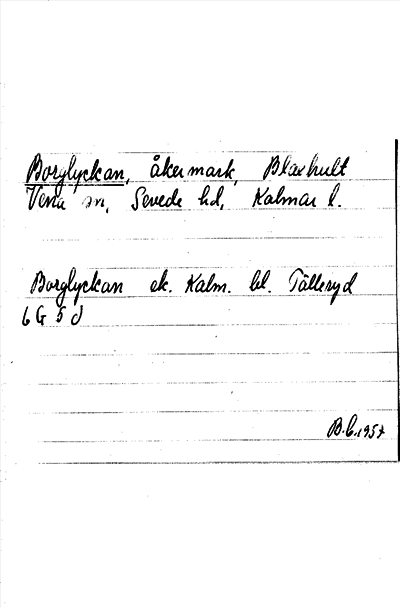 Borglyckan, åkermark, Blaxhult
Vena sn, Sevede hd, Kalmar l.
Borglyckan ek. Kalm. bl. Tälleryd
6 G 5 d
B.C. 1957